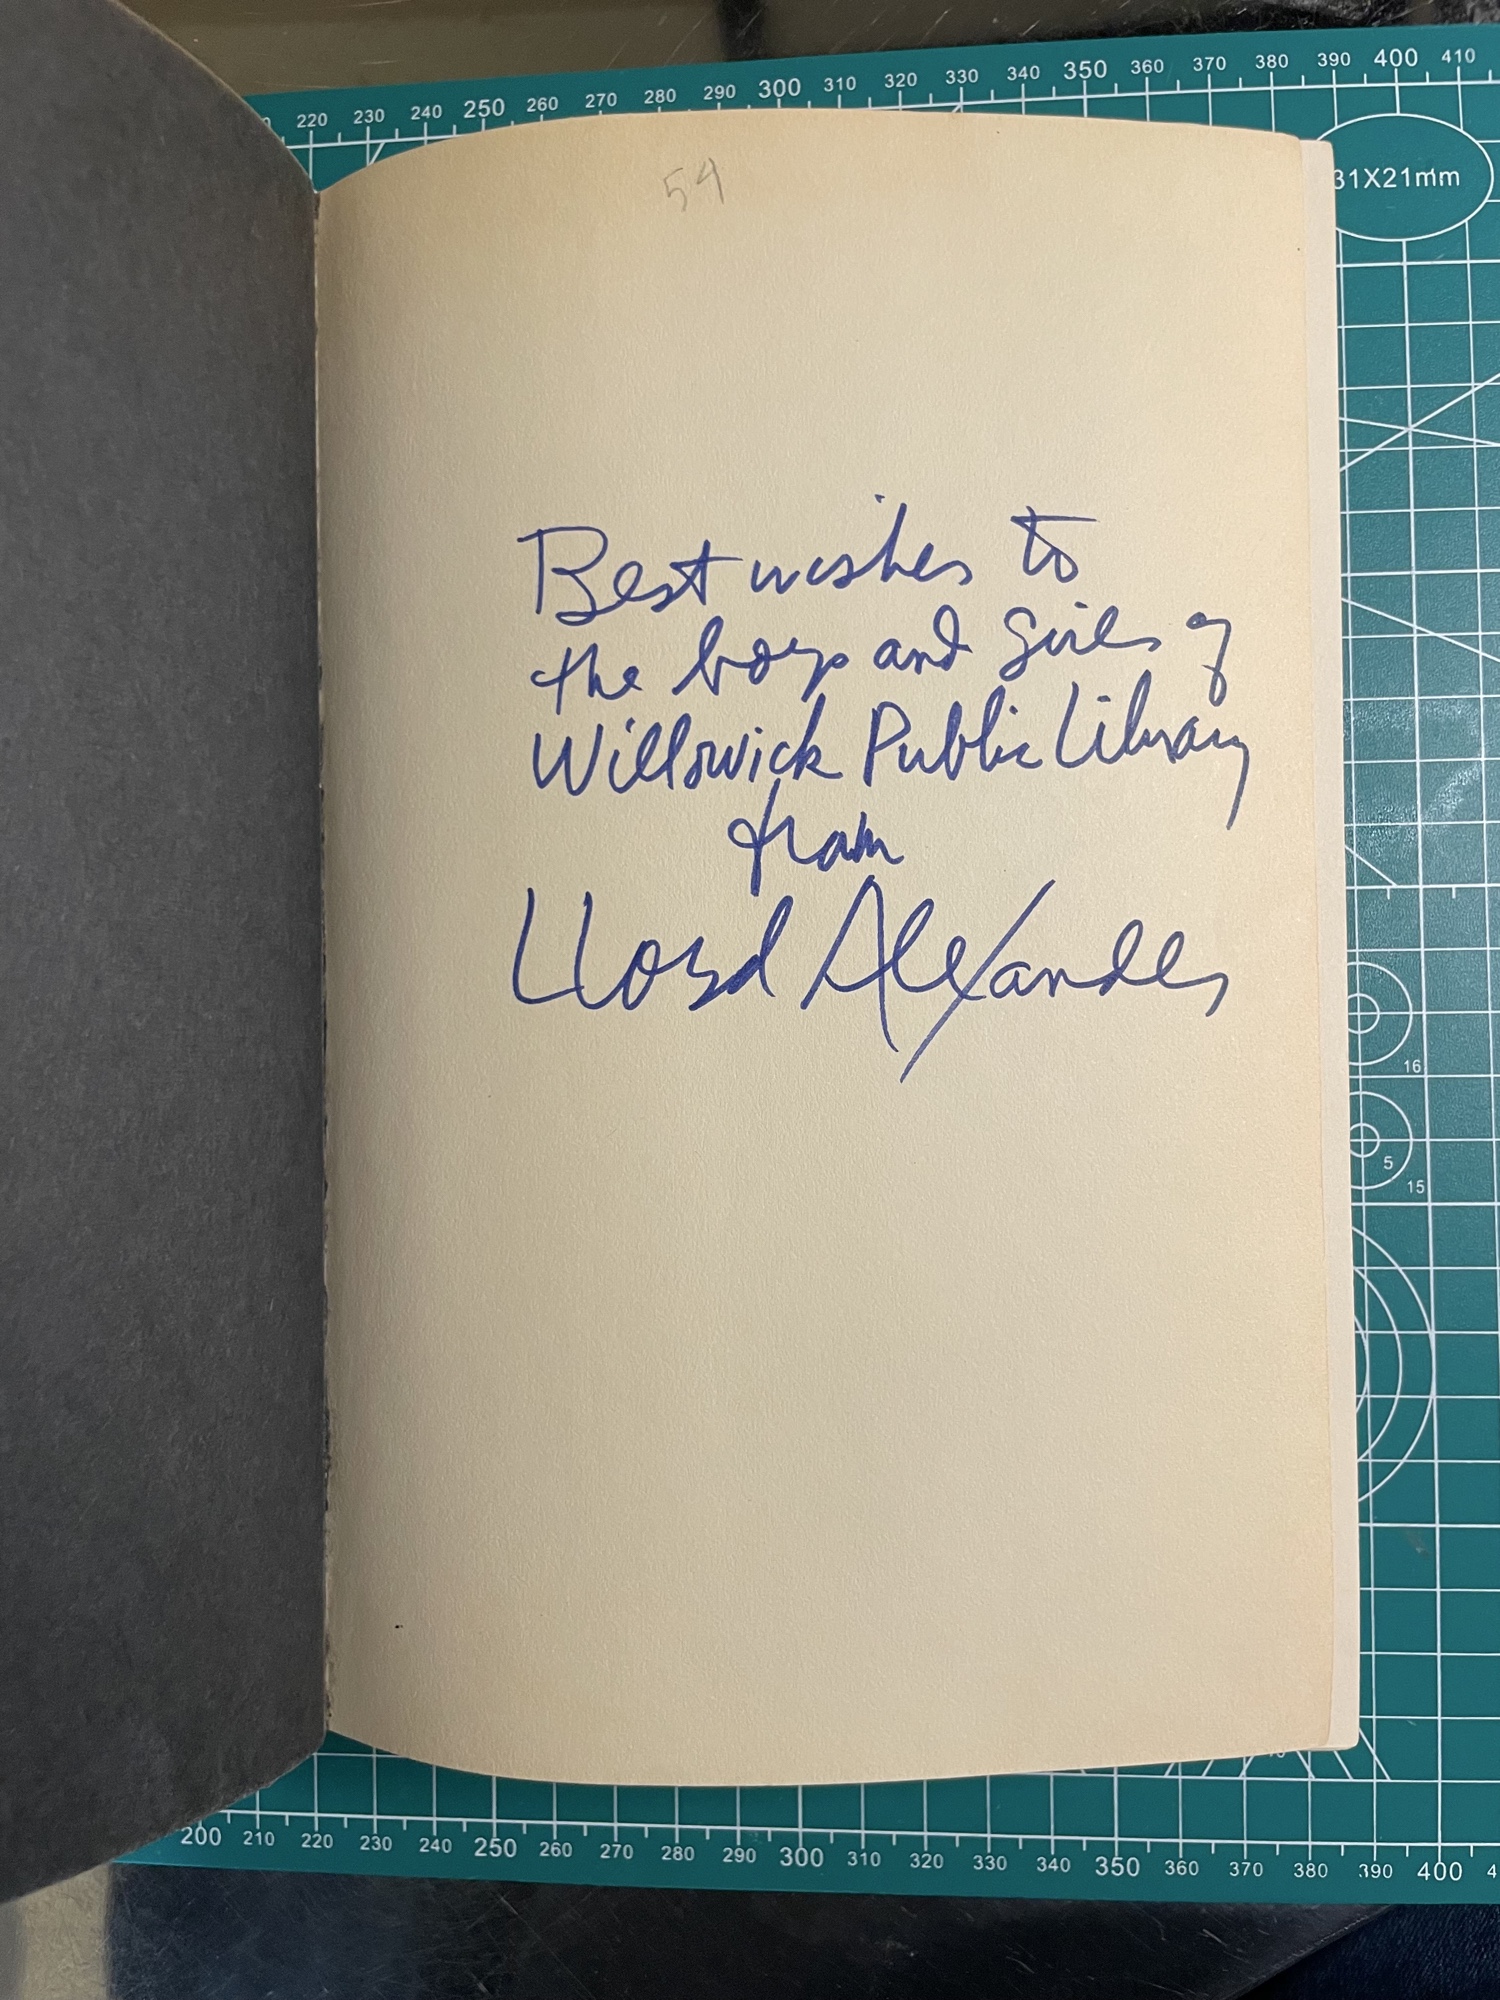 220 230 240 250 260 270 280 290 300 310 320 330 340 350 360 370 380 390 400 410
31X21mm
54
Best wishes to
the boys and girls of
Willowick Public Library
from
Lloyd Alexander
16
5
15
200 210 220 230 240 250 260 270 280 290 300 310 320 330 340 350 360 370 380 390 400